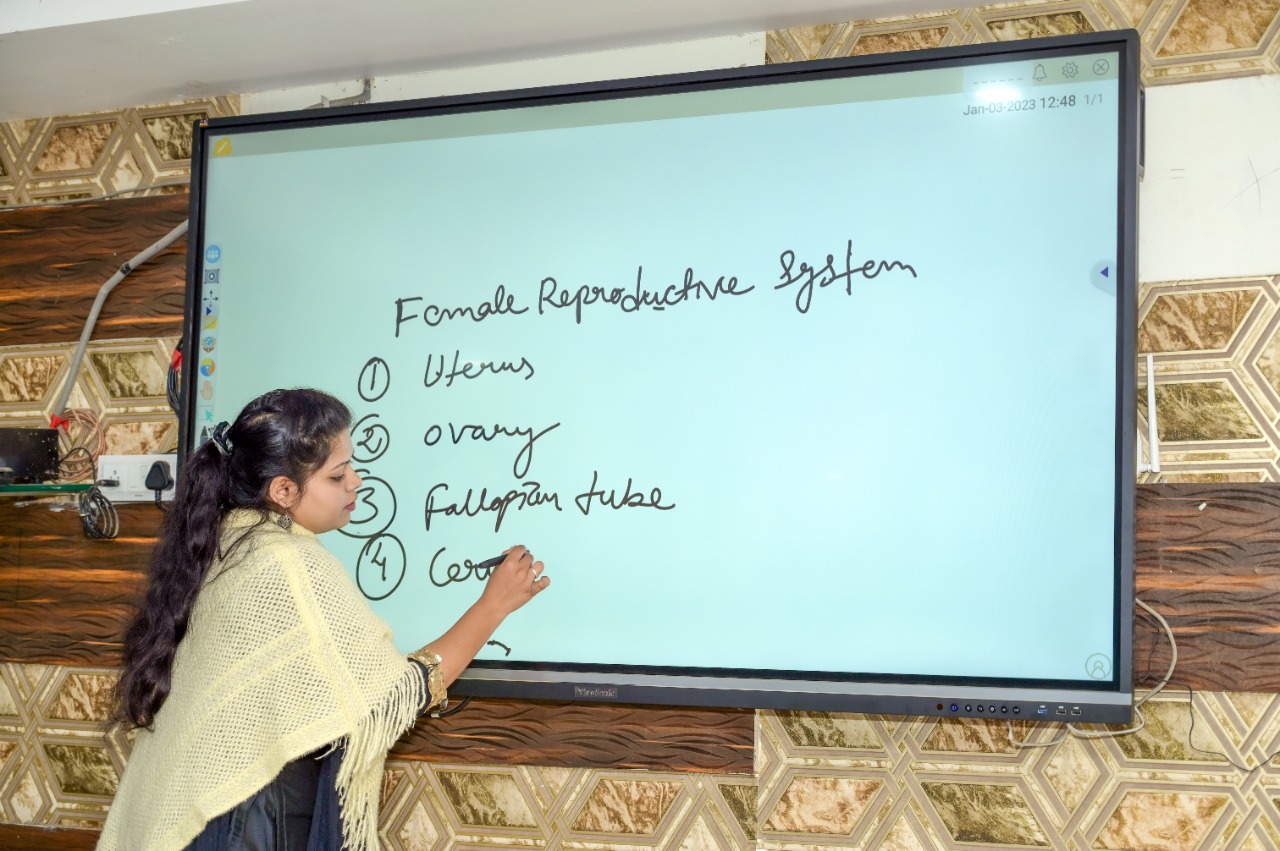 Jan-03-2023 12:48 1/1
Female Reproductive System
1 Uterus
2 ovary
3 Fallopian tube
4 Cer